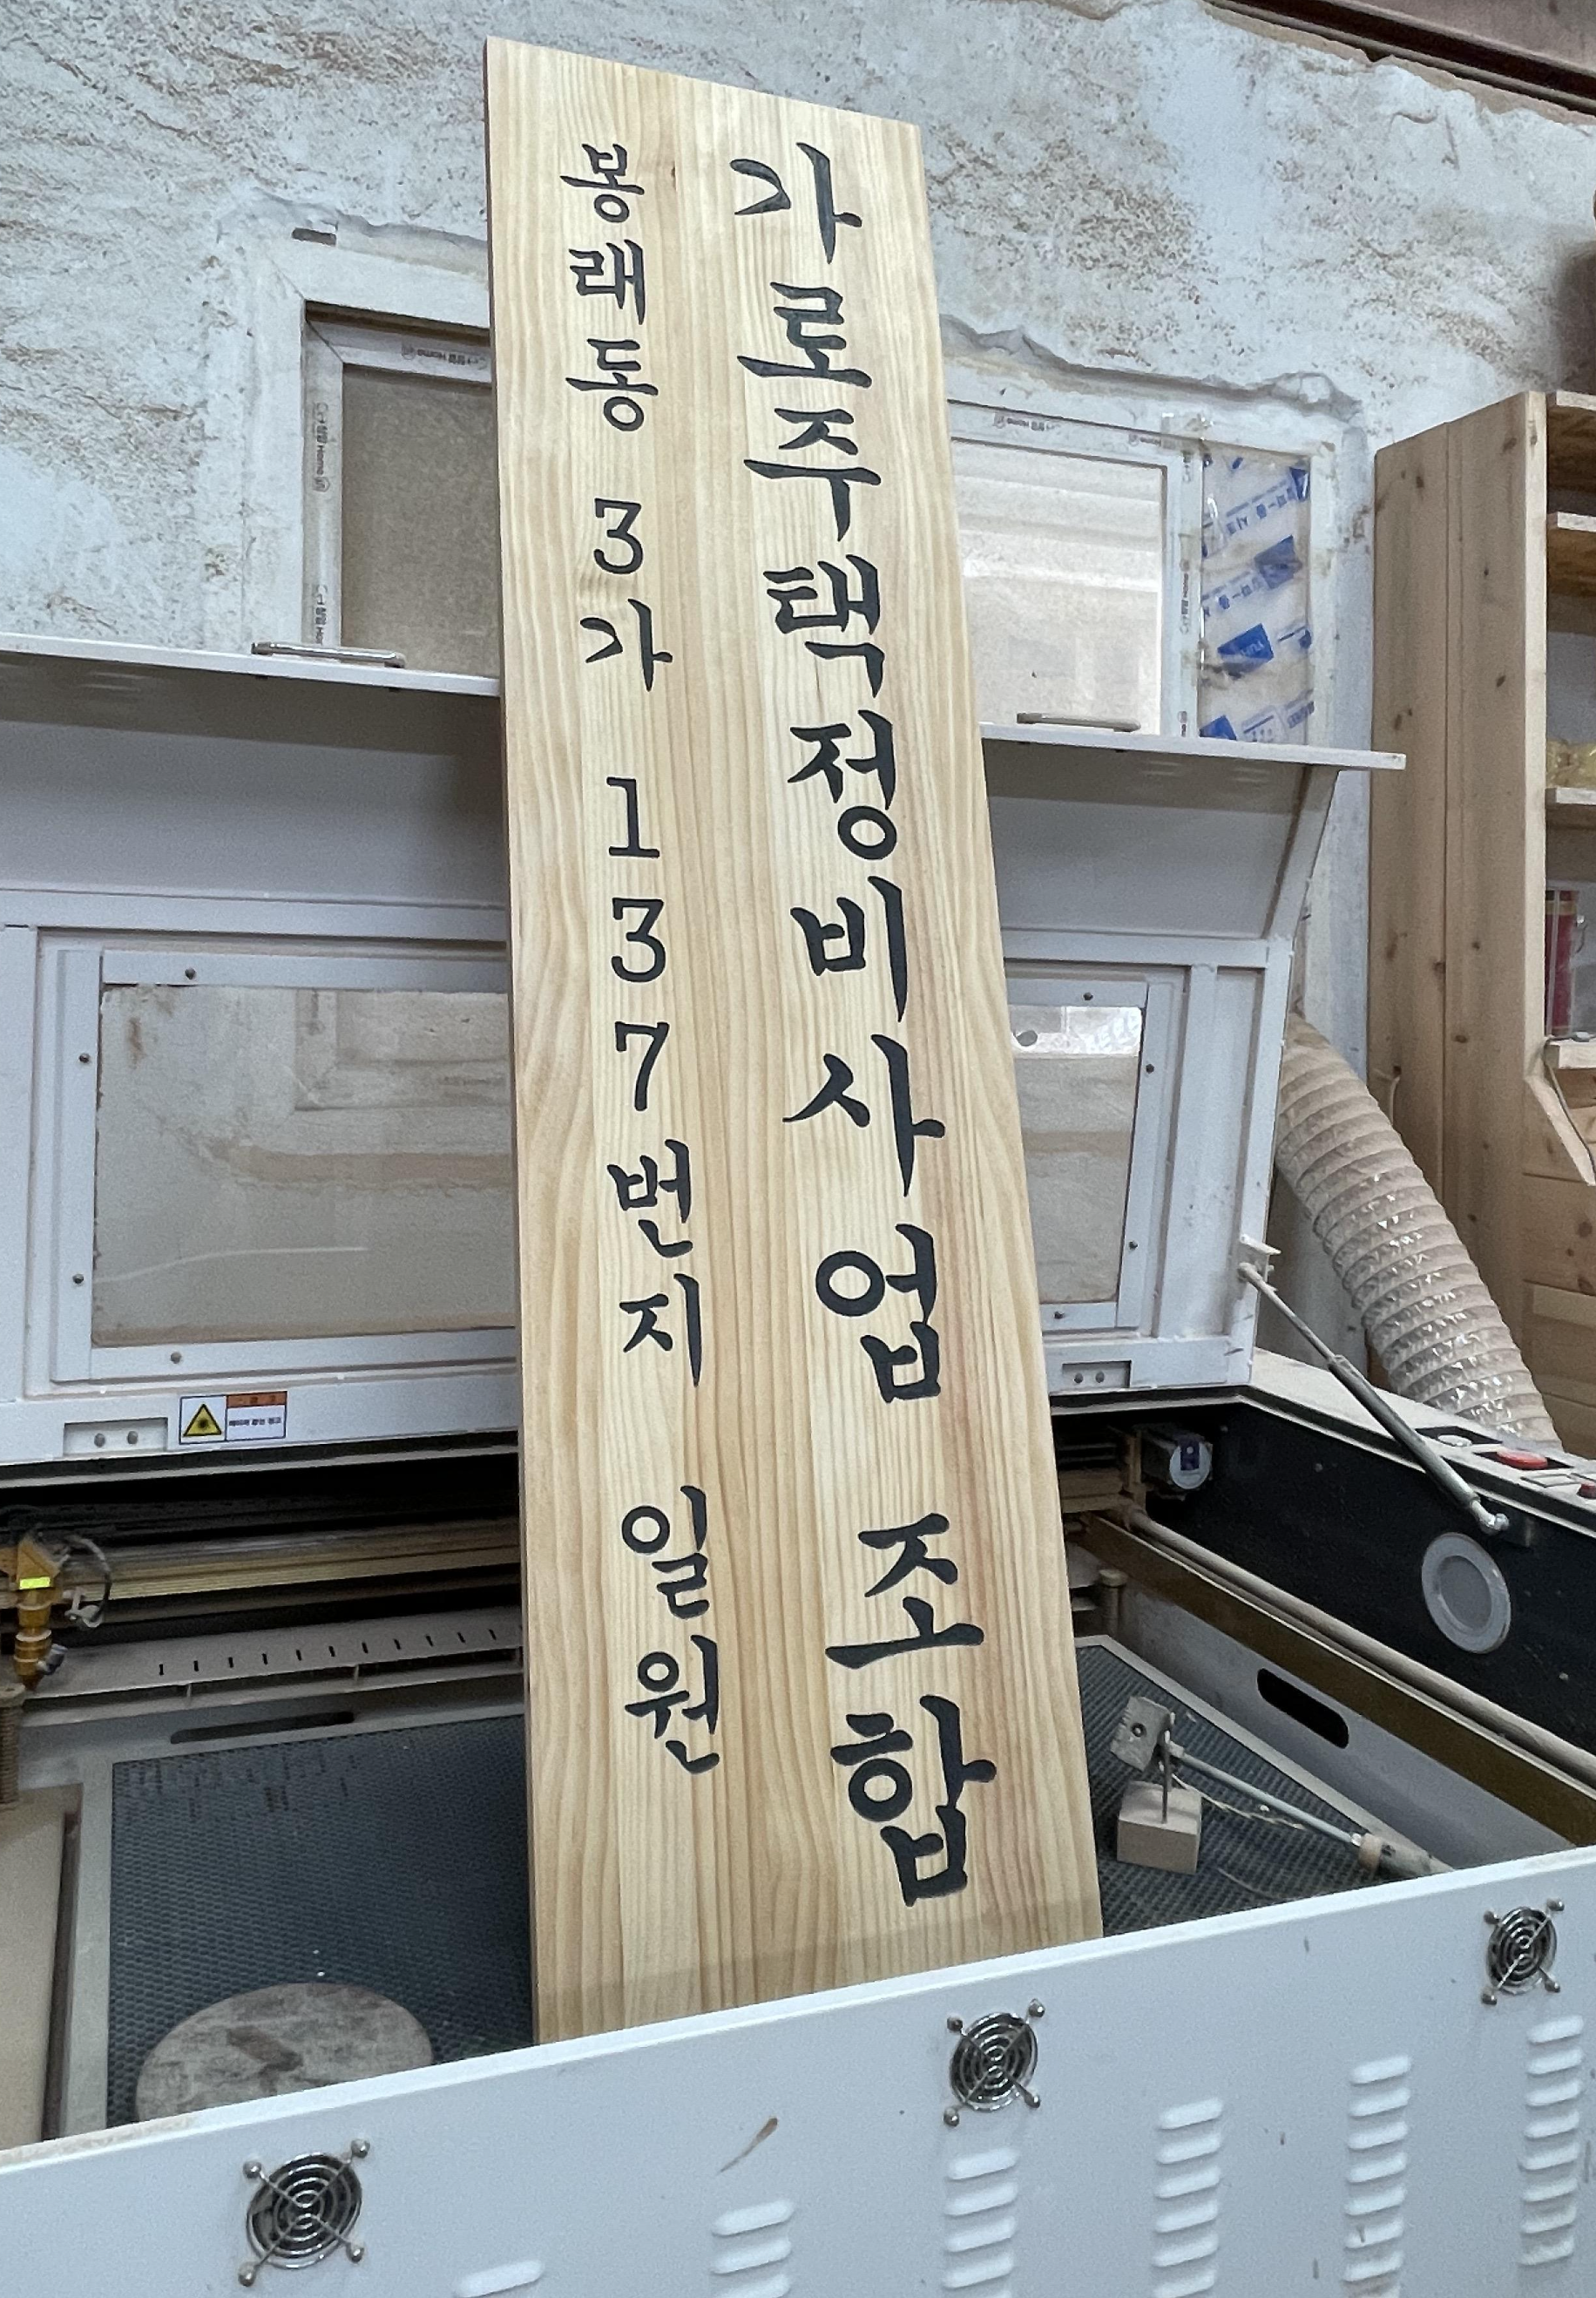 봉래동 3가 137번지 일원
가로주택정비사업 조합